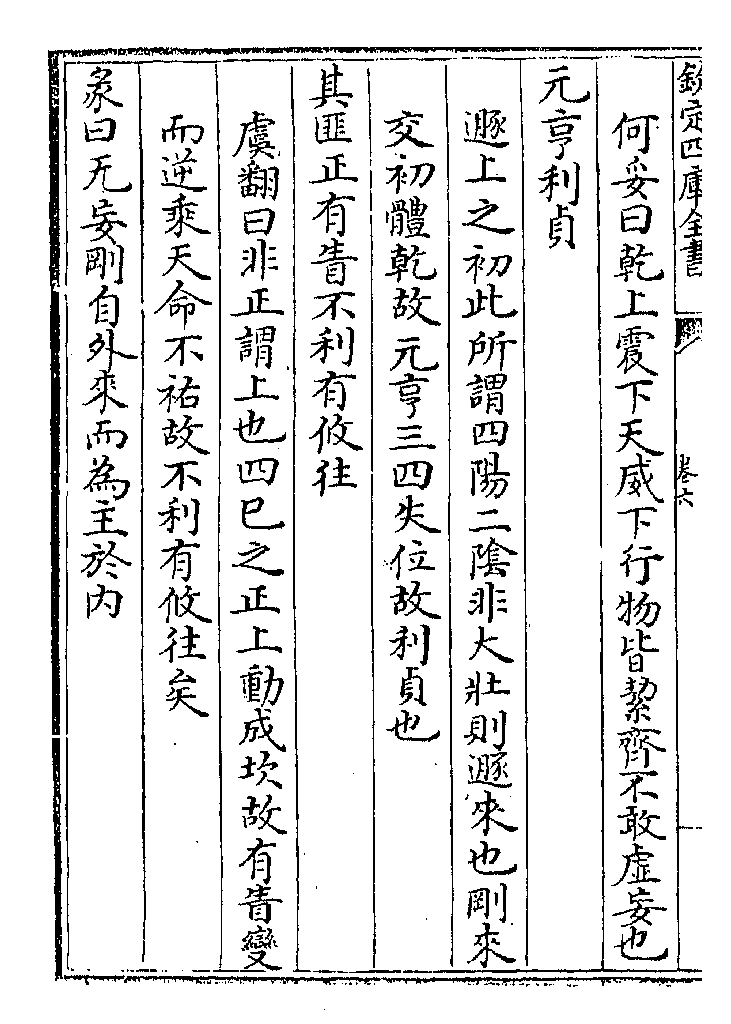 欽定四庫全書
卷六
何妥曰乾上震下天威下行物皆絜齊不敢虛妄也
元亨利貞
遯上之初此所謂四陽二陰非大壯則遯來也剛來
交初體乾故元亨三四失位故利貞也
其匪正有眚不利有攸往
虞翻曰非正謂上也四巳之正上動成坎故有眚變
而逆乘天命不祐故不利有攸往矣
彖曰无妄剛自外來而為主於内